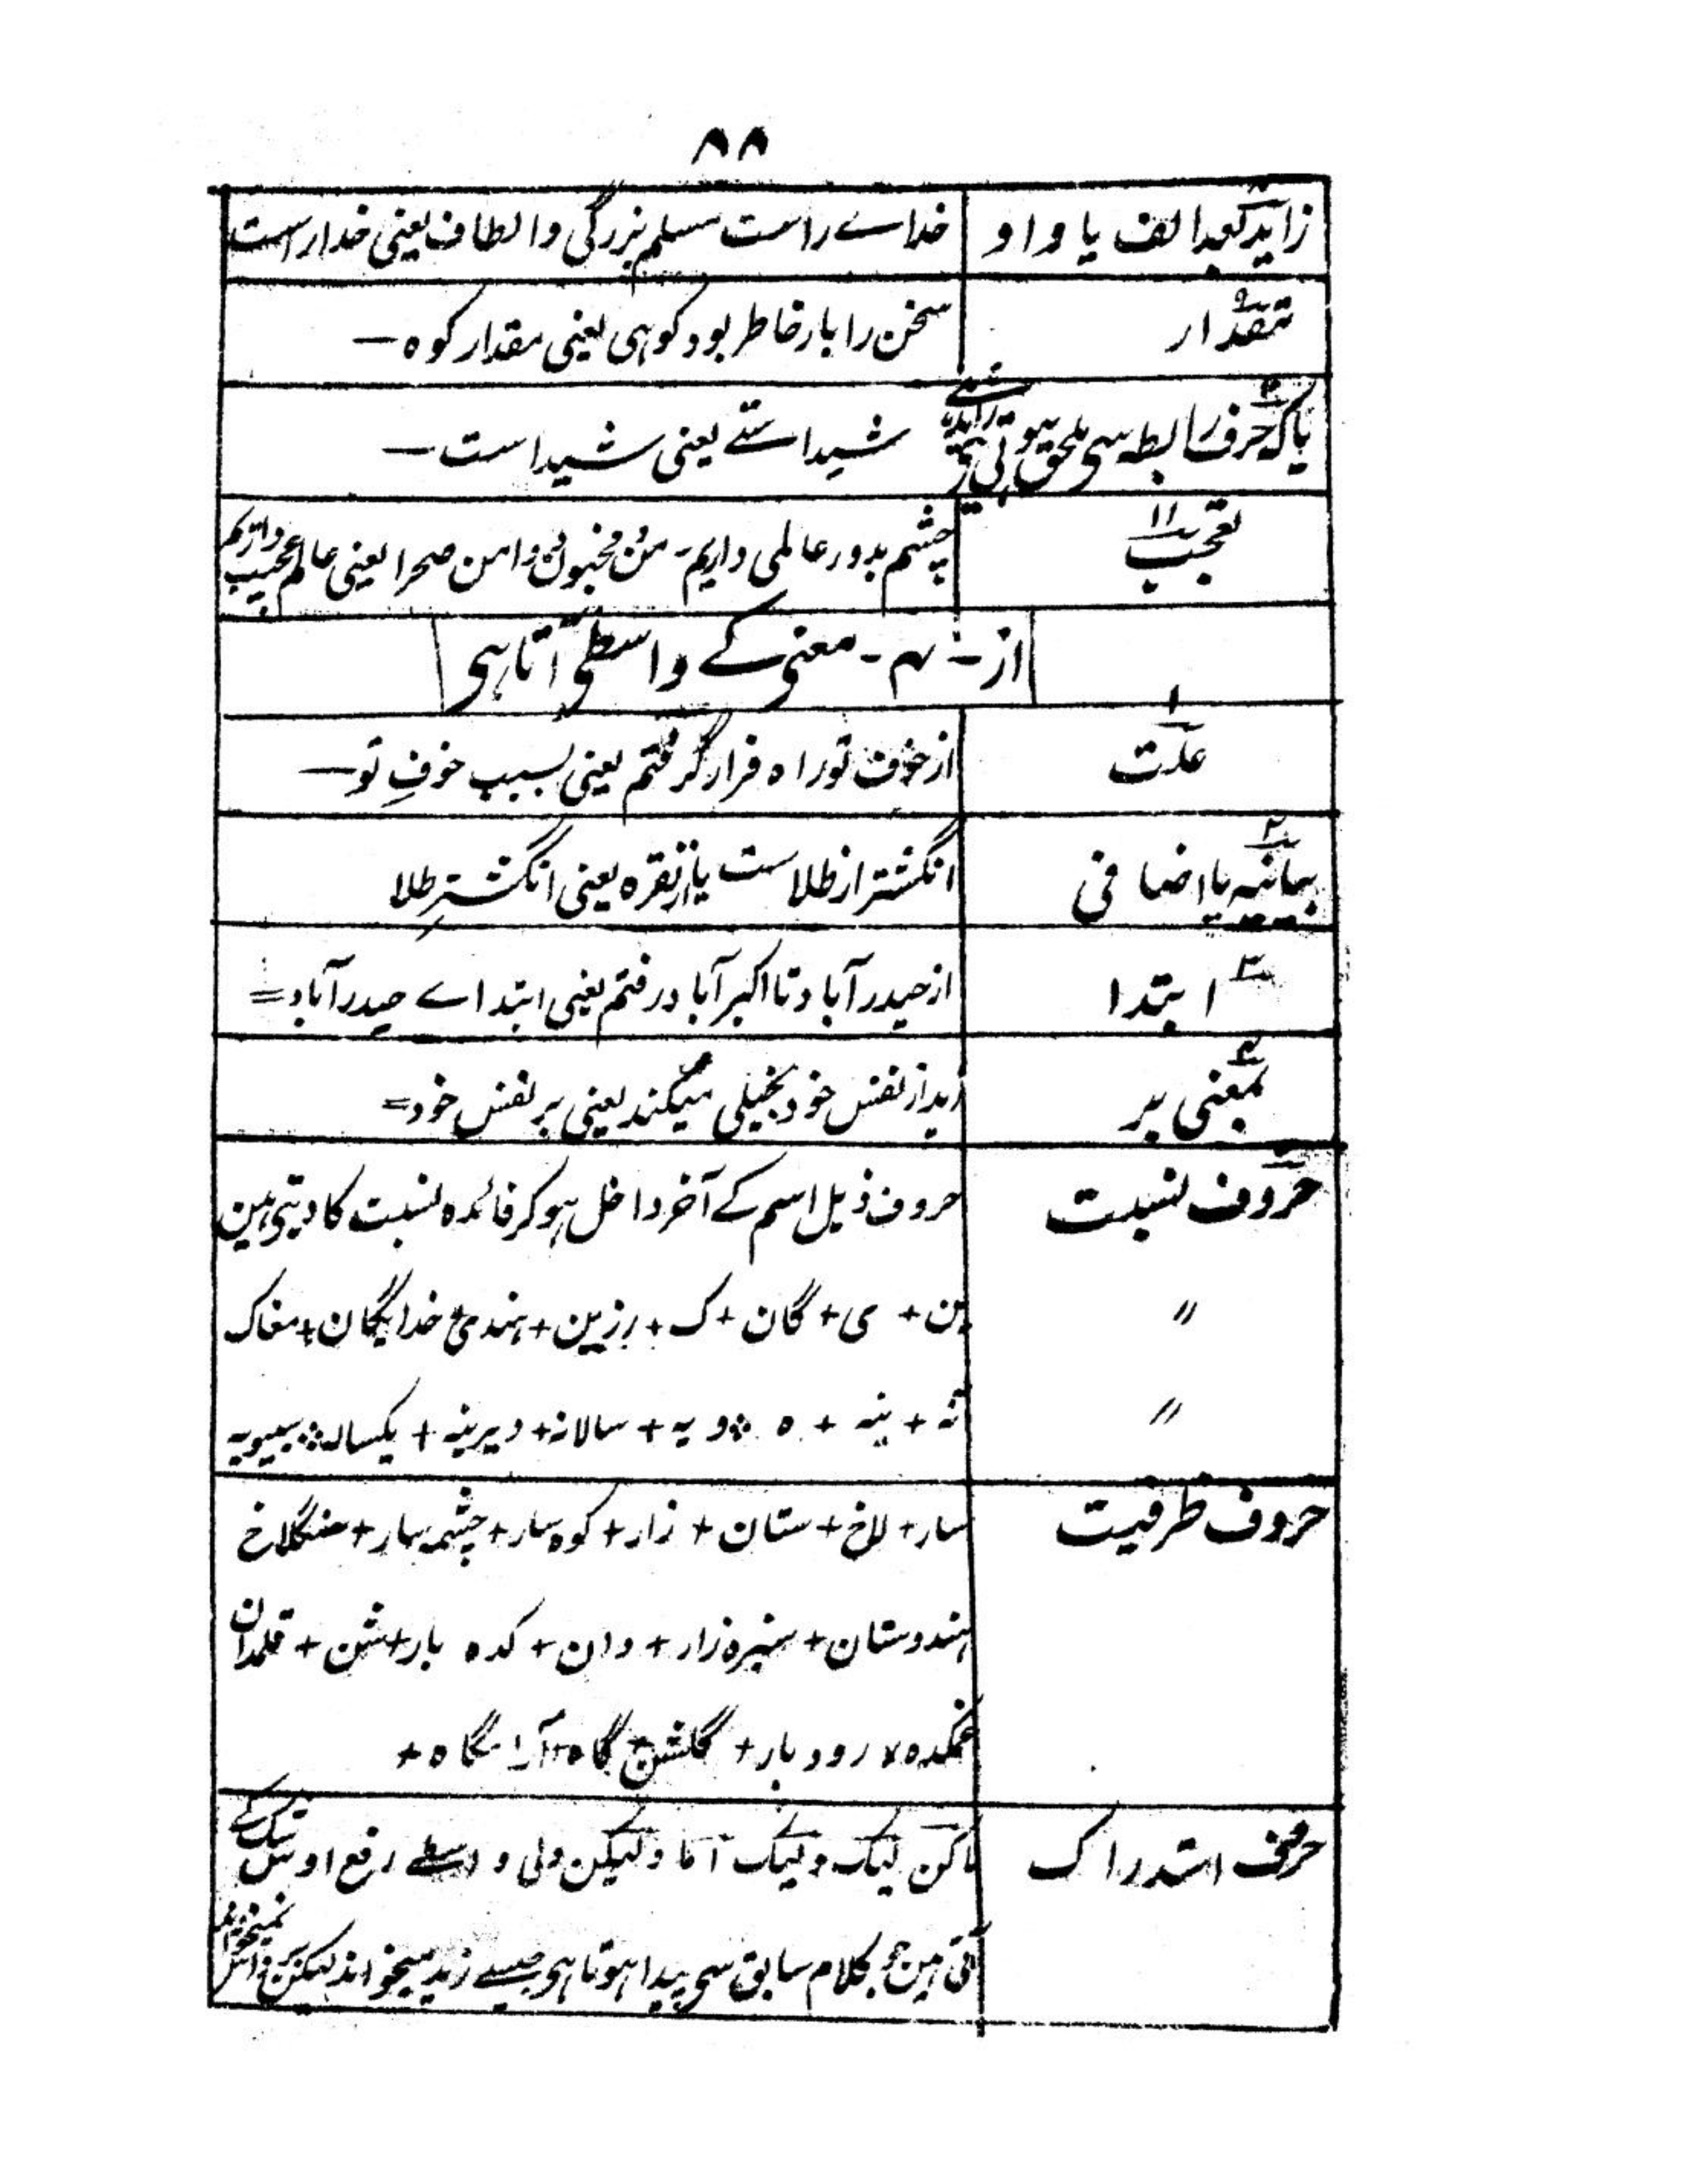 ۸۸
زاید کہ بعد الف یا واو خداے راست مسلم بزرگی و الطاف یعنی خدا راست
۹ مقدار سخن را بار خاطر بود کوہی یعنی مقدار کوہ —
یا کہ حرف رابطہ سی ملحق ہوتی ہی شیداستے یعنی شیدا ست —
۱۱ تعجب چشم بد دور عالمی داریم - من و مجنون و دامن صحرا یعنی عالم عجیب داریم
از - ۴ - معنی کے واسطی آتا ہی
۱ علت از خوف تو راہ فرار گرفتم یعنی بسبب خوفِ تو —
۲ بیانیہ یا اضافی انگشتر از طلاست یا از نقرہ یعنی انگشترِ طلا
۳ ابتدا از حیدرآباد تا اکبرآباد رفتم یعنی ابتداے حیدرآباد =
۴ بمعنی بر زید از نفس خود بخیلی میکند یعنی بر نفس خود =
حروف نسبت حروف ذیل اسم کے آخر داخل ہوکر فائدہ نسبت کا دیتی ہین
〃 ین + ی + گان + ک + رزین + ہندی + خدایگان + مغاک
〃 نہ + ینہ + ہ + ویہ + سالانہ + دیرینہ + یکسالہ + سیبویہ
حروف ظرفیت سار + لاخ + ستان + زار + کوہسار + چشمہ سار + سنگلاخ
ہندوستان + سبزہ زار + دان + کدہ بار + شن + قلمدان
غمکدہ رودبار + گلشن + گاہ + آرامگاہ +
حرف استدراک لاکن لیک و لیک اما و لیکن ولی واسطے رفع اوس شک کے
آتی ہین جو کلام سابق سی پیدا ہوتا ہی جیسے زید میخواند لیکن